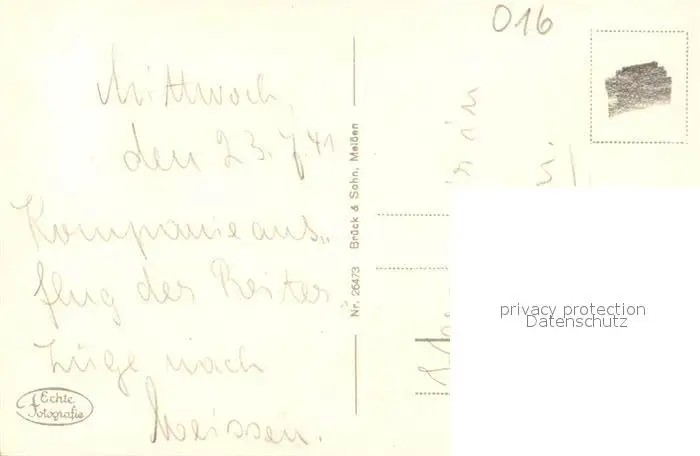 016
Mittwoch,
den 23. 7. 41
Kompanieaus„
flug der Reiter
züge nach
Meissen.
Echte
Fotografie
Nr. 26473 Brück & Sohn, Meißen
privacy protection
Datenschutz